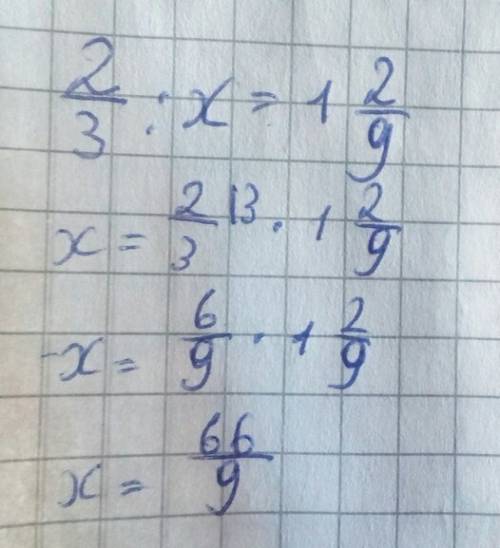 2/3 : x = 1 2/9
x = 2/3 |3 · 1 2/9
x = 6/9 · 1 2/9
x = 66/9